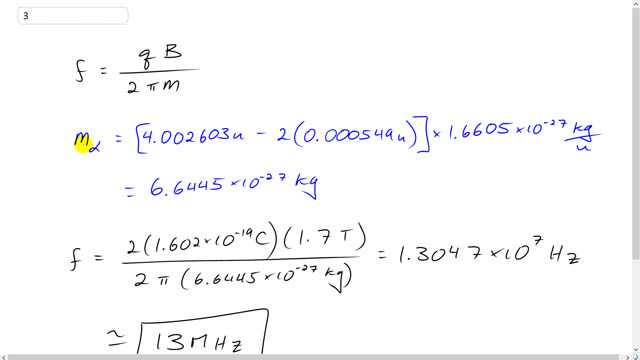 3
f = qB / 2πm
mα = [4.002603u − 2(0.000549u)] × 1.6605×10⁻²⁷ kg/u
= 6.6445×10⁻²⁷ kg
f = 2(1.602×10⁻¹⁹C)(1.7T) / 2π(6.6445×10⁻²⁷kg) = 1.3047×10⁷ Hz
≃ 13MHz